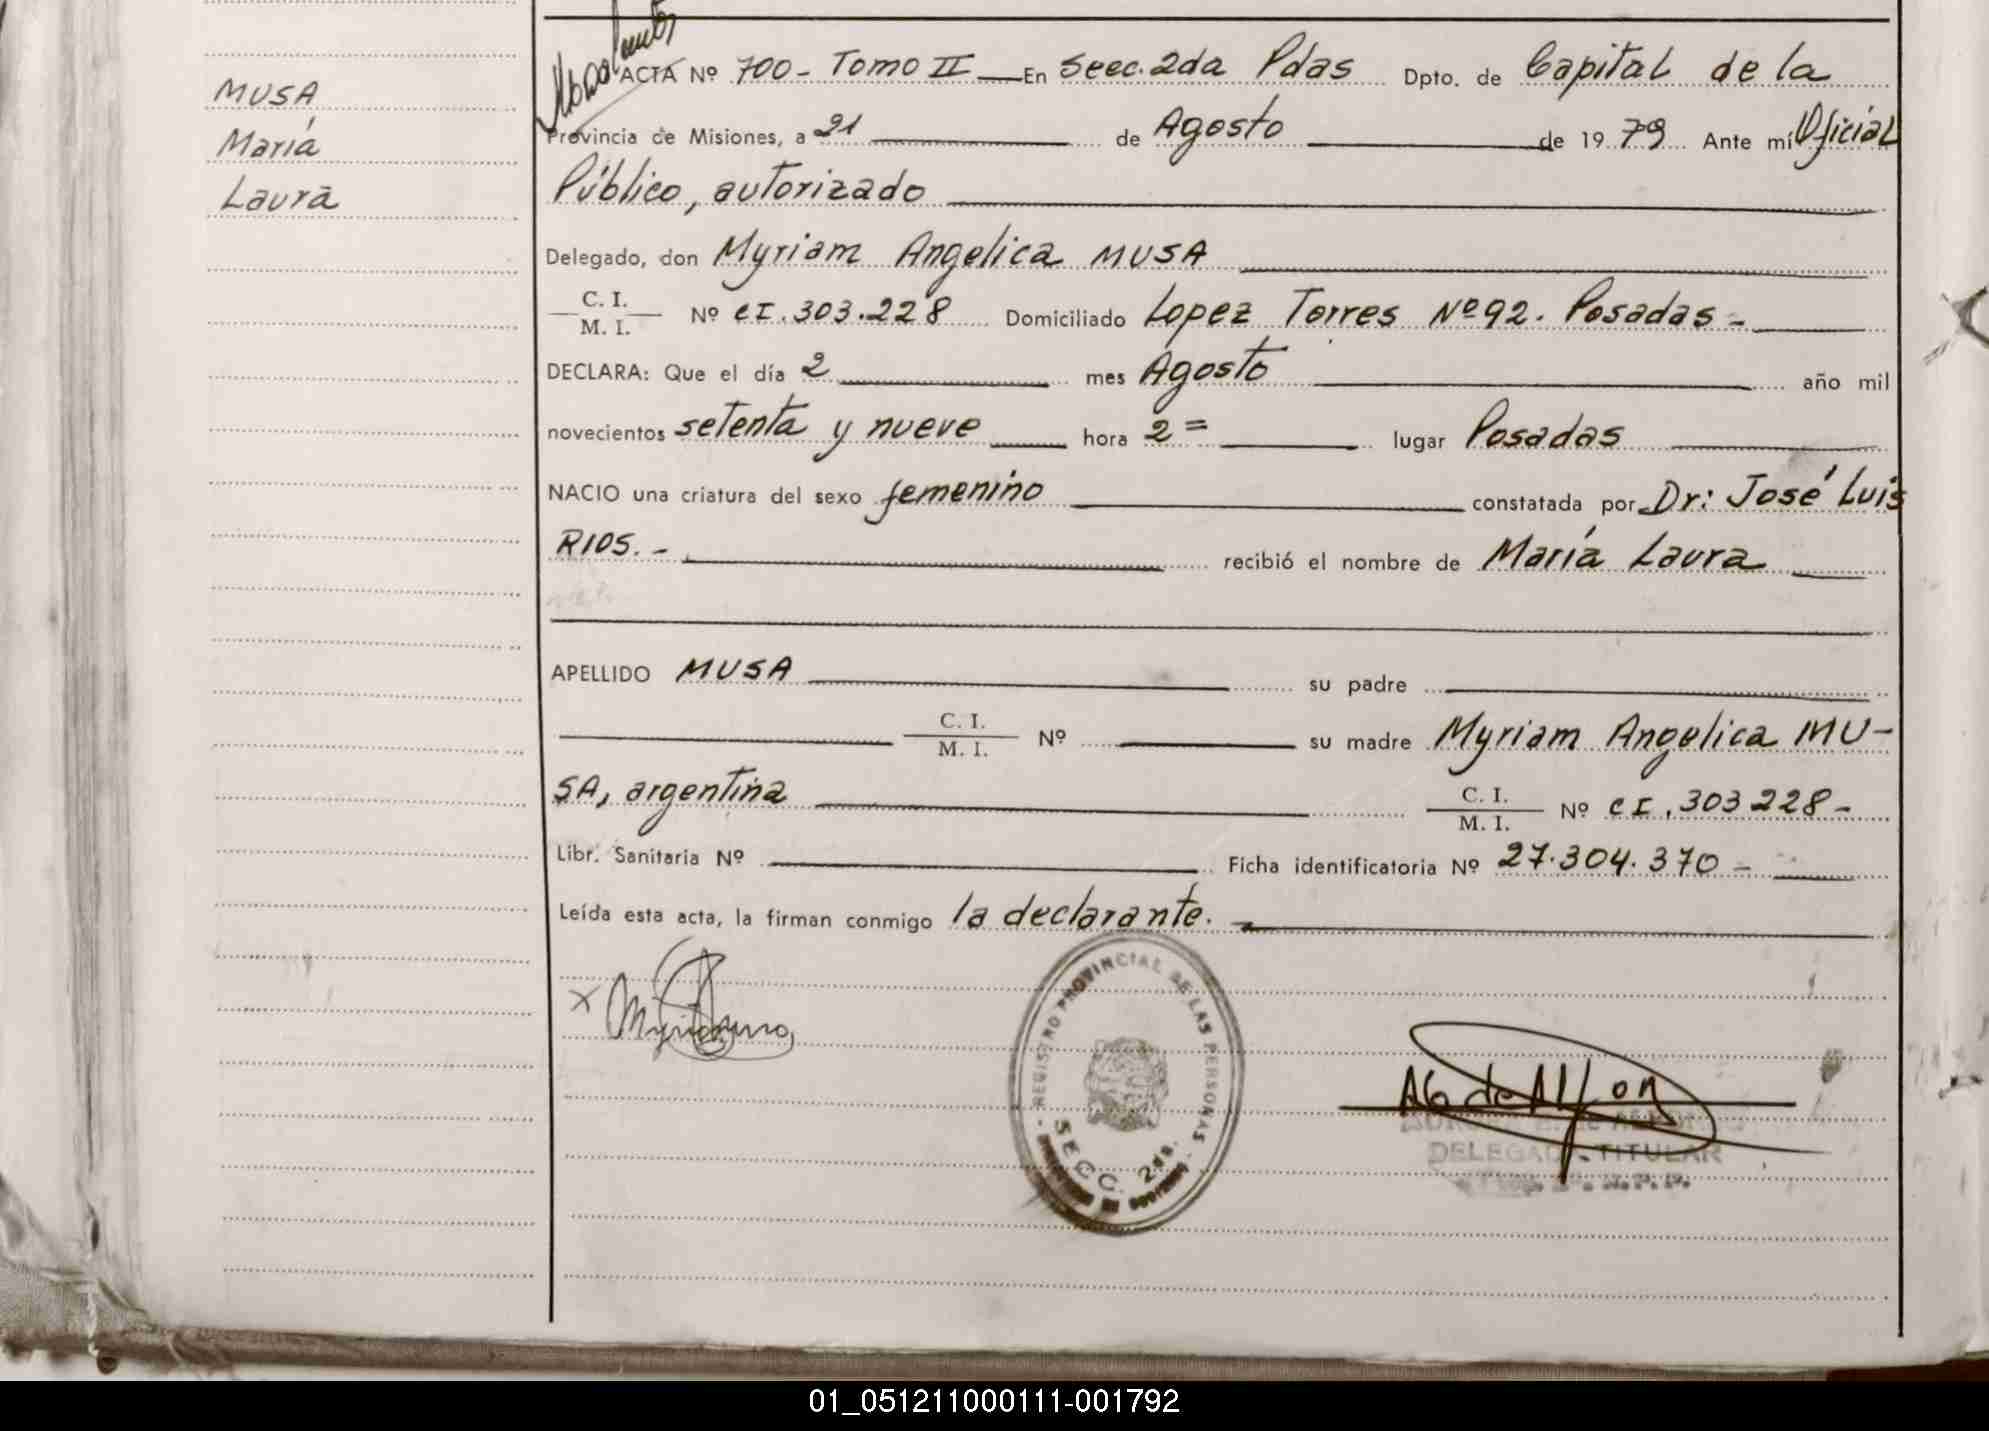 MUSA
María
Laura
ACTA Nº 700 - Tomo II En Secc. 2da Pdas Dpto. de Capital de la
Provincia de Misiones, a 21 de Agosto de 1979 Ante mí Oficial
Público, autorizado
Delegado, don Myriam Angelica MUSA
C. I.
M. I. Nº CI. 303.228 Domiciliado Lopez Torres Nº 92. Posadas -
DECLARA: Que el día 2 mes Agosto año mil
novecientos setenta y nueve hora 2 = lugar Posadas
NACIO una criatura del sexo femenino constatada por Dr: José Luis
RIOS. - recibió el nombre de María Laura
APELLIDO MUSA su padre
C. I.
M. I. Nº su madre Myriam Angelica MU-
SA, argentina C. I.
M. I. Nº CI. 303228 -
Libr. Sanitaria Nº Ficha identificatoria Nº 27.304.370 -
Leída esta acta, la firman conmigo la declarante.
REGISTRO PROVINCIAL DE LAS PERSONAS
SECC. 2da.
DELEGADA TITULAR
01_051211000111-001792